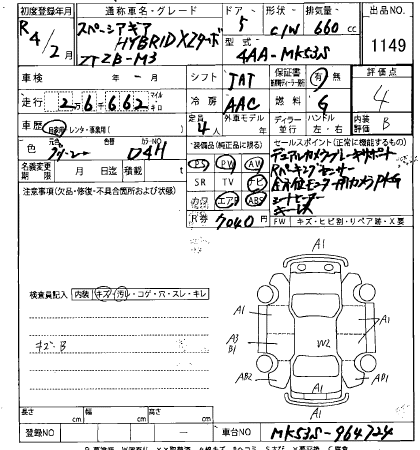 初度登録年月 通称車名・グレード ドア 形状 排気量 出品NO.
R4/2月 スペーシアギア HYBRID XZターボ 5 C/W 660cc 1149
ZTZB-M3 型式 4AA-MK53S
車検 年 - 月 シフト IAT 保証書 有 無 評価点
走行 2万6千662 マイル キロ 冷房 AAC 燃料 G 4
車歴 自家用 レンタ・事業用( ) 定員 4人 外車モデル ディーラー 並行 ハンドル 左・右 内装評価 B
色 元色 グリーン 色替 カラーNO D4H 装備品(純正品に限る) セールスポイント(正常に機能するもの)
PS PW AW デュアルカメラブレーキサポート
名義変更期限 月 日迄 積載 t SR TV ナビ Rパーキングセンサー
注意事項(欠品・修復・不具合箇所および状態) カワ エアB ABS 全方位モニター用カメラPKG
シートヒーター
R券 7040円
FW キズ・ヒビ割・リペア跡・X要
検査員記入 内装 キズ・汚レ・コゲ・穴・スレ・キレ
キズ B
A1
A1
A3
B1
W2
A1
AB2
A1
AB1
A1
長さ cm 幅 cm 高さ cm
登録NO - 車台NO MK53S-964724